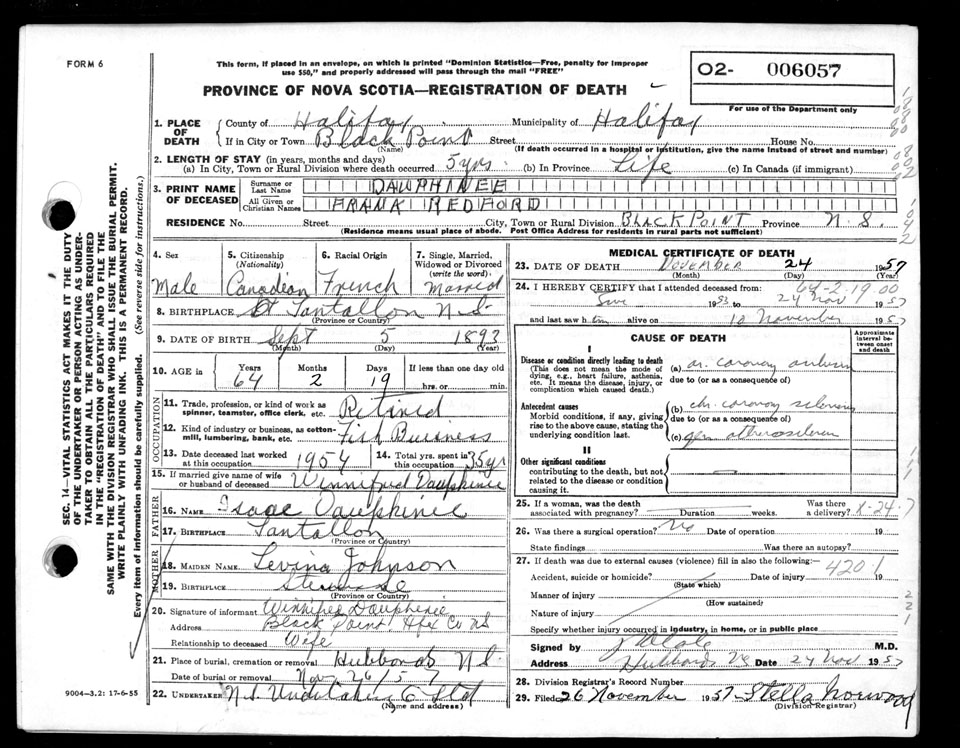 FORM 6
This form, if placed in an envelope, on which is printed "Dominion Statistics—Free, penalty for improper
use $50," and properly addressed will pass through the mail "FREE"
02- 006057
For use of the Department only
PROVINCE OF NOVA SCOTIA—REGISTRATION OF DEATH
1. PLACE OF DEATH
County of Halifax Municipality of Halifax
If in City or Town Black Point Street House No.
(Name) (If death occurred in a hospital or institution, give the name instead of street and number)
2. LENGTH OF STAY (in years, months and days)
(a) In City, Town or Rural Division where death occurred 5 yrs. (b) In Province Life (c) In Canada (if immigrant)
3. PRINT NAME OF DECEASED
Surname or Last Name DAUPHINEE
All Given or Christian Names FRANK REDFORD
RESIDENCE No. Street City, Town or Rural Division BLACK POINT Province N. S.
(Residence means usual place of abode. Post Office Address for residents in rural parts not sufficient)
4. Sex Male
5. Citizenship (Nationality) Canadian
6. Racial Origin French
7. Single, Married, Widowed or Divorced (write the word) Married
8. BIRTHPLACE Tantallon N S
(Province or Country)
9. DATE OF BIRTH Sept 5 1893
(Month) (Day) (Year)
10. AGE in Years Months Days If less than one day old
64 2 19 hrs. or min.
OCCUPATION
11. Trade, profession, or kind of work as
spinner, teamster, office clerk, etc. Retired
12. Kind of industry or business, as cotton-
mill, lumbering, bank, etc. Fish Business
13. Date deceased last worked
at this occupation 1954
14. Total yrs. spent in
this occupation 35 yr
15. If married give name of wife
or husband of deceased Winnifred Dauphinee
FATHER
16. NAME Isaac Dauphinee
17. BIRTHPLACE Tantallon
(Province or Country)
MOTHER
18. MAIDEN NAME Levina Johnson
19. BIRTHPLACE
(Province or Country)
20. Signature of informant Winnifred Dauphinee
Address Black Point Hfx Co NS
Relationship to deceased Wife
21. Place of burial, cremation or removal Hubbards N S.
Date of burial or removal Nov 26/57
22. UNDERTAKER N S Undertaking Co Ltd
(Name and address)
9004—3.2: 17-6-55
MEDICAL CERTIFICATE OF DEATH
23. DATE OF DEATH November 24 1957
(Month) (Day) (Year)
64-2-19.00
24. I HEREBY CERTIFY that I attended deceased from:
1953 to 24 Nov 1957
and last saw him alive on 10 November 1957
CAUSE OF DEATH
Approximate interval between onset and death
I
Disease or condition directly leading to death
(This does not mean the mode of
dying, e.g., heart failure, asthenia,
etc. It means the disease, injury, or
complication which caused death.)
(a) coronary
due to (or as a consequence of)
Antecedent causes
Morbid conditions, if any, giving
rise to the above cause, stating the
underlying condition last.
(b) chr. coronary sclerosis
due to (or as a consequence of)
(c) gen
II
Other significant conditions
contributing to the death, but not
related to the disease or condition
causing it.
25. If a woman, was the death
associated with pregnancy? Duration weeks. Was there
a delivery? X-24-7
26. Was there a surgical operation? No Date of operation 19
State findings Was there an autopsy?
27. If death was due to external causes (violence) fill in also the following:— 4201
Accident, suicide or homicide? Date of injury 19
(State which)
Manner of injury
(How sustained)
Nature of injury
Specify whether injury occurred in industry, in home, or in public place
Signed by M.D.
Address Hubbards NS Date 24 Nov 1957
28. Division Registrar's Record Number
29. Filed 26 November 1957 Stella Norwood
(Division Registrar)
SEC. 14—VITAL STATISTICS ACT MAKES IT THE DUTY
OF THE UNDERTAKER OR PERSON ACTING AS UNDER-
TAKER TO OBTAIN ALL THE PARTICULARS REQUIRED
IN THE "REGISTRATION OF DEATH" AND TO FILE THE
SAME WITH THE DIVISION REGISTRAR WHO SHALL ISSUE THE BURIAL PERMIT.
WRITE PLAINLY WITH UNFADING INK. THIS IS A PERMANENT RECORD.
Every item of information should be carefully supplied. (See reverse side for instructions.)